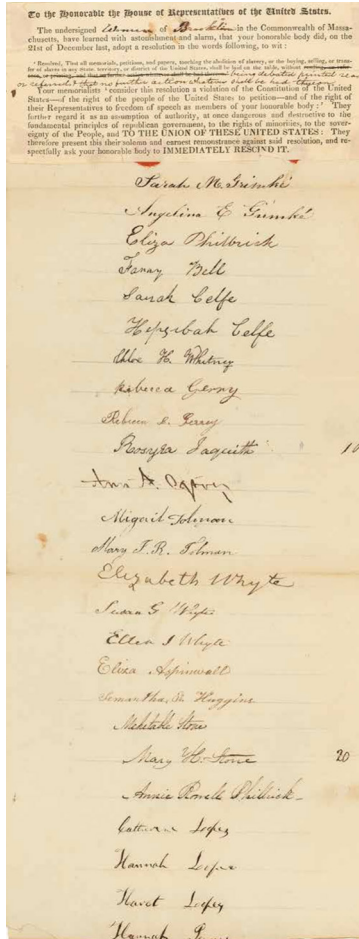 To the Honorable the House of Representatives of the United States.
The undersigned of Brookline in the Commonwealth of Massa-
chusetts, have learned with astonishment and alarm, that your honorable body did, on the
21st of December last, adopt a resolution in the words following, to wit:
' Resolved, That all memorials, petitions, and papers, touching the abolition of slavery, or the buying, selling, or trans-
fer of slaves in any state, territory, or district of the United States, shall be laid on the table, without being debated printed read
or referred & that no further action whatever shall be had thereon.'
Your memorialists consider this resolution a violation of the Constitution of the United
States—of the right of the people of the United States to petition—and of the right of
their Representatives to freedom of speech as members of your honorable body: They
further regard it as an assumption of authority, at once dangerous and destructive to the
fundamental principles of republican government, to the rights of minorities, to the sover-
eignty of the People, and TO THE UNION OF THESE UNITED STATES: They
therefore present this their solemn and earnest remonstrance against said resolution, and re-
spectfully ask your honorable body to IMMEDIATELY RESCIND IT.
Sarah M. Grimké
Angelina E Grimké
Eliza Philbrick
Fanny Bell
Sarah Celfe
Hepzibah Celfe
Chloe H. Whitney
Rebecca Gerry
Rebecca Gerry
Jaquith
Ann A.
Abigail Tolman
Mary T. R. Tolman
Elizabeth Whyte
Susan G Whyte
Ellen J Whyte
Eliza Aspinwall
Samantha Huggins
Mehetable Stone
Mary H. Stone 20
Annie Philbrick
Catherine Lopez
Hannah
Lopez
Hannah